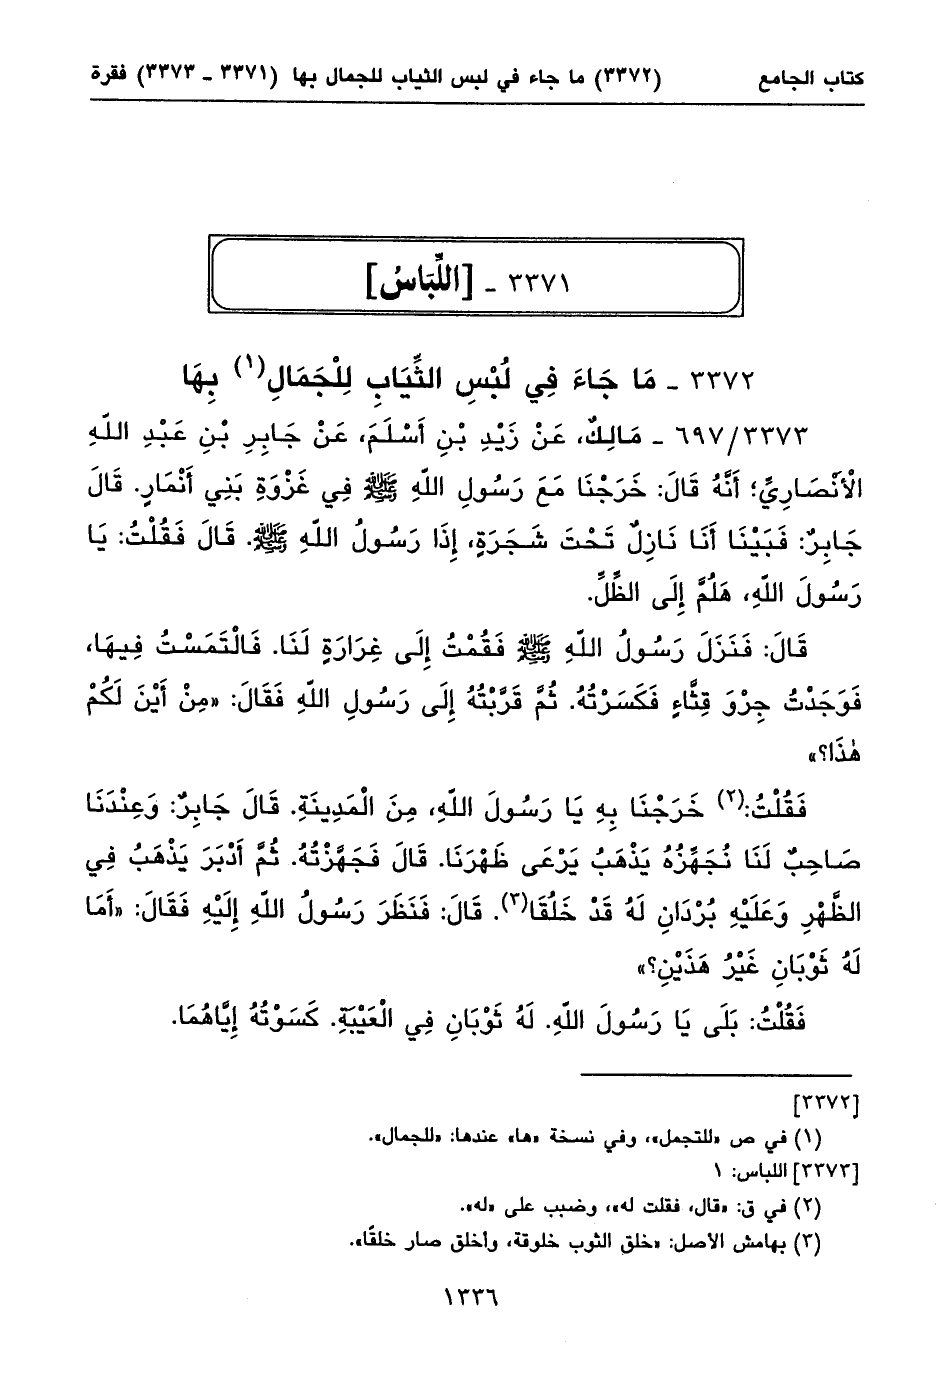 كتاب الجامع (٣٣٧٢) ما جاء في لبس الثياب للجمال بها (٣٣٧١ - ٣٣٧٣) فقرة
٣٣٧١ - [اللِّبَاسُ]
٣٣٧٢ - مَا جَاءَ فِي لُبْسِ الثِّيَابِ لِلْجَمَالِ(١) بِهَا
٦٩٧/٣٣٧٣ - مَالِكٌ، عَنْ زَيْدِ بْنِ أَسْلَمَ، عَنْ جَابِرِ بْنِ عَبْدِ اللّهِ
الْأَنْصَارِيِّ؛ أَنَّهُ قَالَ: خَرَجْنَا مَعَ رَسُولِ اللّهِ ﷺ فِي غَزْوَةِ بَنِي أَنْمَارٍ. قَالَ
جَابِرٌ: فَبَيْنَا أَنَا نَازِلٌ تَحْتَ شَجَرَةٍ، إِذَا رَسُولُ اللّهِ ﷺ. قَالَ فَقُلْتُ: يَا
رَسُولَ اللّهِ، هَلُمَّ إِلَى الظِّلِّ.
قَالَ: فَنَزَلَ رَسُولُ اللّهِ ﷺ فَقُمْتُ إِلَى غِرَارَةٍ لَنَا. فَالْتَمَسْتُ فِيهَا،
فَوَجَدْتُ جِرْوَ قِثَّاءٍ فَكَسَرْتُهُ. ثُمَّ قَرَّبْتُهُ إِلَى رَسُولِ اللّهِ فَقَالَ: «مِنْ أَيْنَ لَكُمْ
هٰذَا؟»
فَقُلْتُ:(٢) خَرَجْنَا بِهِ يَا رَسُولَ اللّهِ، مِنَ الْمَدِينَةِ. قَالَ جَابِرٌ: وَعِنْدَنَا
صَاحِبٌ لَنَا نُجَهِّزُهُ يَذْهَبُ يَرْعَى ظَهْرَنَا. قَالَ فَجَهَّزْتُهُ. ثُمَّ أَدْبَرَ يَذْهَبُ فِي
الظَّهْرِ وَعَلَيْهِ بُرْدَانِ لَهُ قَدْ خَلُقَا(٣). قَالَ: فَنَظَرَ رَسُولُ اللّهِ إِلَيْهِ فَقَالَ: «أَمَا
لَهُ ثَوْبَانِ غَيْرُ هَذَيْنِ؟»
فَقُلْتُ: بَلَى يَا رَسُولَ اللّهِ. لَهُ ثَوْبَانِ فِي الْعَيْبَةِ. كَسَوْتُهُ إِيَّاهُمَا.
[٣٣٧٢]
(١) في ص «للتجمل»، وفي نسخة «ها» عندها: «للجمال».
[٣٣٧٣] اللباس: ١
(٢) في ق: «قال، فقلت له»، وضبب على «له».
(٣) بهامش الأصل: «خلق الثوب خلوقة، وأخلق صار خلقًا».
١٣٣٦